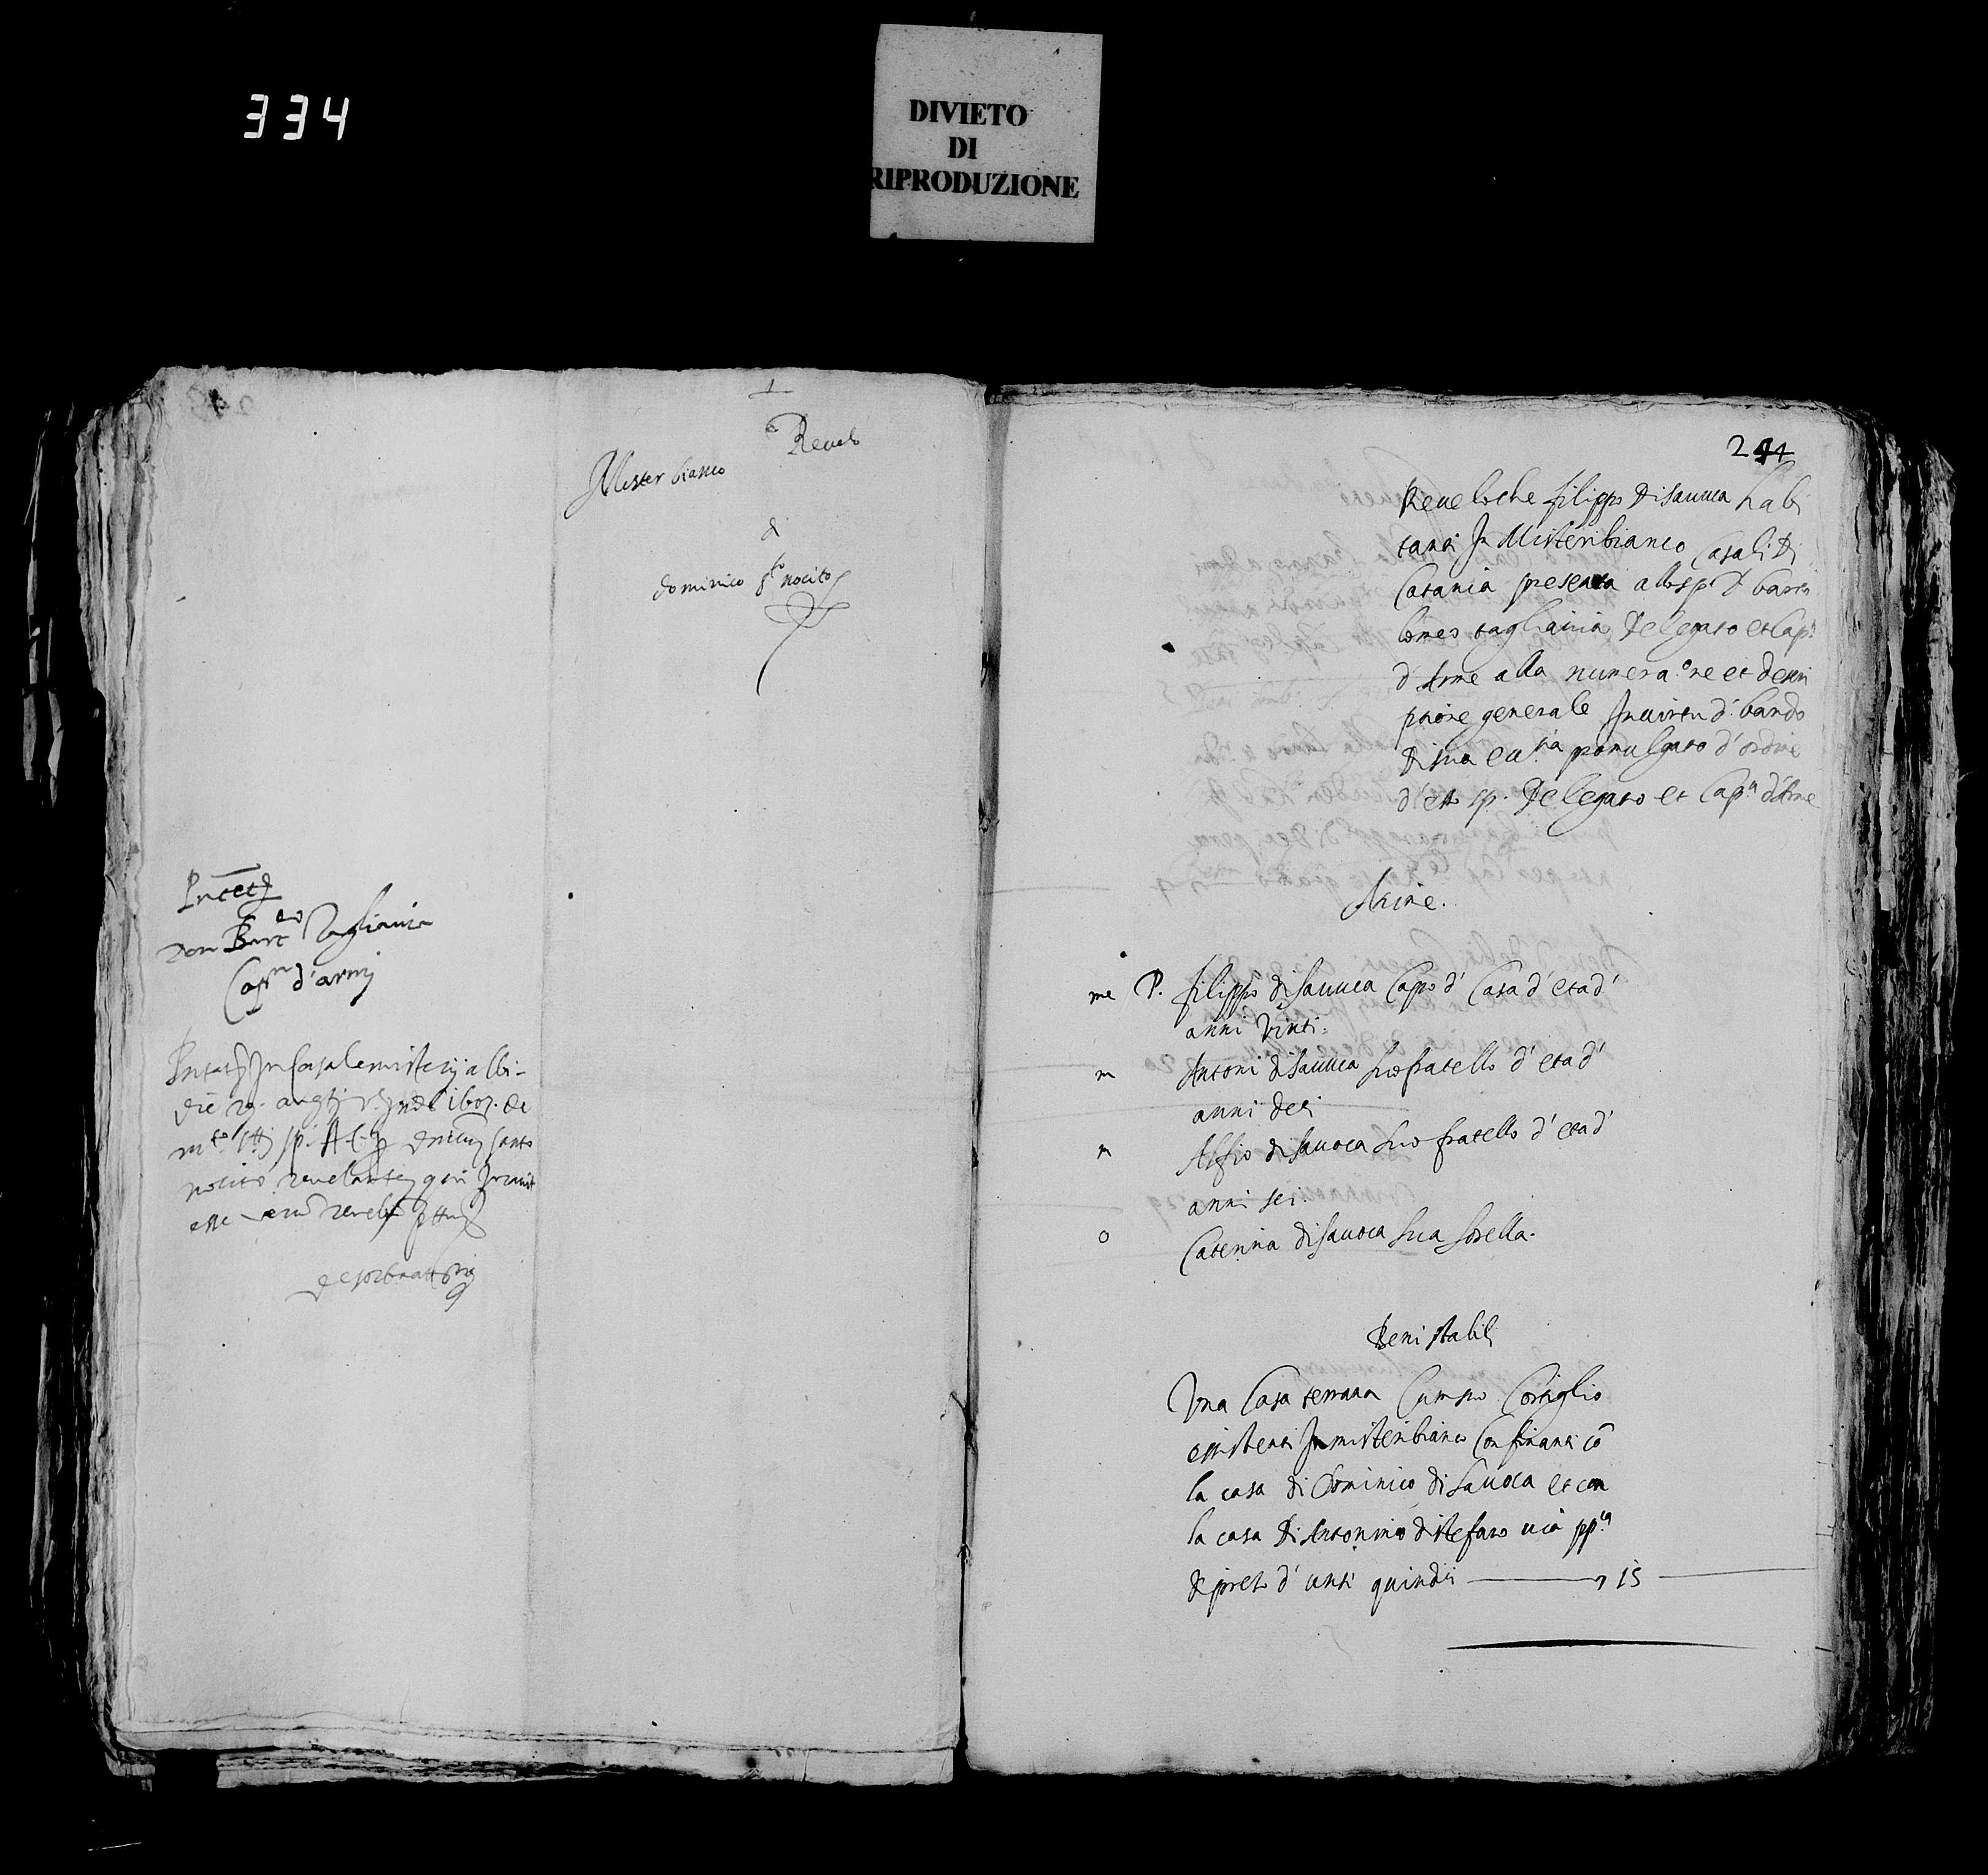 334
DIVIETO
DI
RIPRODUZIONE
1
Revelo
Mister bianco
di
dominico s.to nocito
Don Bart.eo Tagliavia
Cap.n d'armi
die 29. aug.ti
nocito revelante qui Juravit
esse
244
Revelo che filippo di Sauuca habi
tanti In Misteribianco Casali di
Catania presenta allo sp. D. Barto
lomeo tagliavia Delegato et Cap.n
d'Arme alla numera.ne et descri
ptione generale In virtu d. bando
di sua ecc.tia promulgato d'ordine
d'etto sp. Delegato et Cap.n d'Arme
Anime.
me P. filippo di Sauuca Capo d' Casa d' eta d'
anni vinti:
m Antoni di Sauuca suo fratello d' eta d'
anni deci
m Alfio di Sauoca suo fratello d' eta d'
anni sei.
o Caterina di Sauoca sua sorella.
Beni stabili
Una Casa terrana Cum suo Cortiglio
existenti In misteribianco Confinanti cō
la casa di Dominico di Sauoca et con
la casa di Antonino di stefano via pp.ca
di prezo d' unzi quindici 15